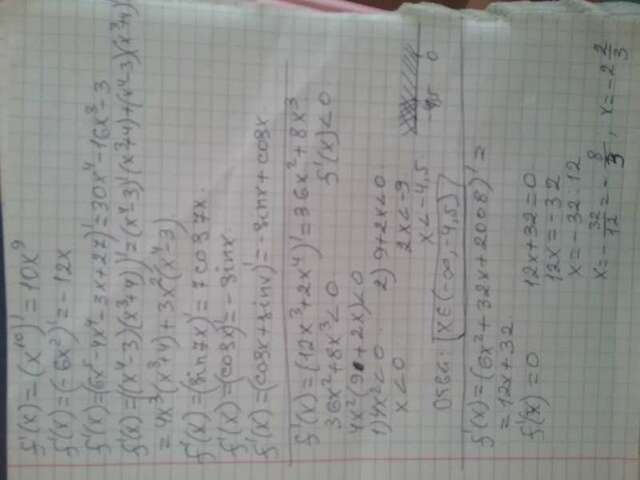 f'(x)=(x¹⁰)'=10x⁹
f'(x)=(-6x²)'=-12x
f'(x)=(6x⁵-4x⁴-3x+27)'=30x⁴-16x³-3
f'(x)=((x⁴-3)(x³+4))'=(x⁴-3)'(x³+4)+(x⁴-3)(x³+4)'
=4x³(x³+4)+3x²(x⁴-3)
f'(x)=(sin7x)'=7cos7x.
f'(x)=(cosx)'=-sinx.
f'(x)=(cosx+sinx)'=-sinx+cosx
f'(x)=(12x³+2x⁴)'=36x²+8x³
36x²+8x³<0 f'(x)<0
4x²(9+2x)<0
1) 4x²<0 2) 9+2x<0
x<0 2x<-9
x<-4,5
-4,5 0
x∈(-∞,-4,5)
f'(x)=(6x²+32x+2008)'=
=12x+32
f'(x)=0 12x+32=0
12x=-32
x=-32:12
x=-32/12=-8/3, x=-2 2/3